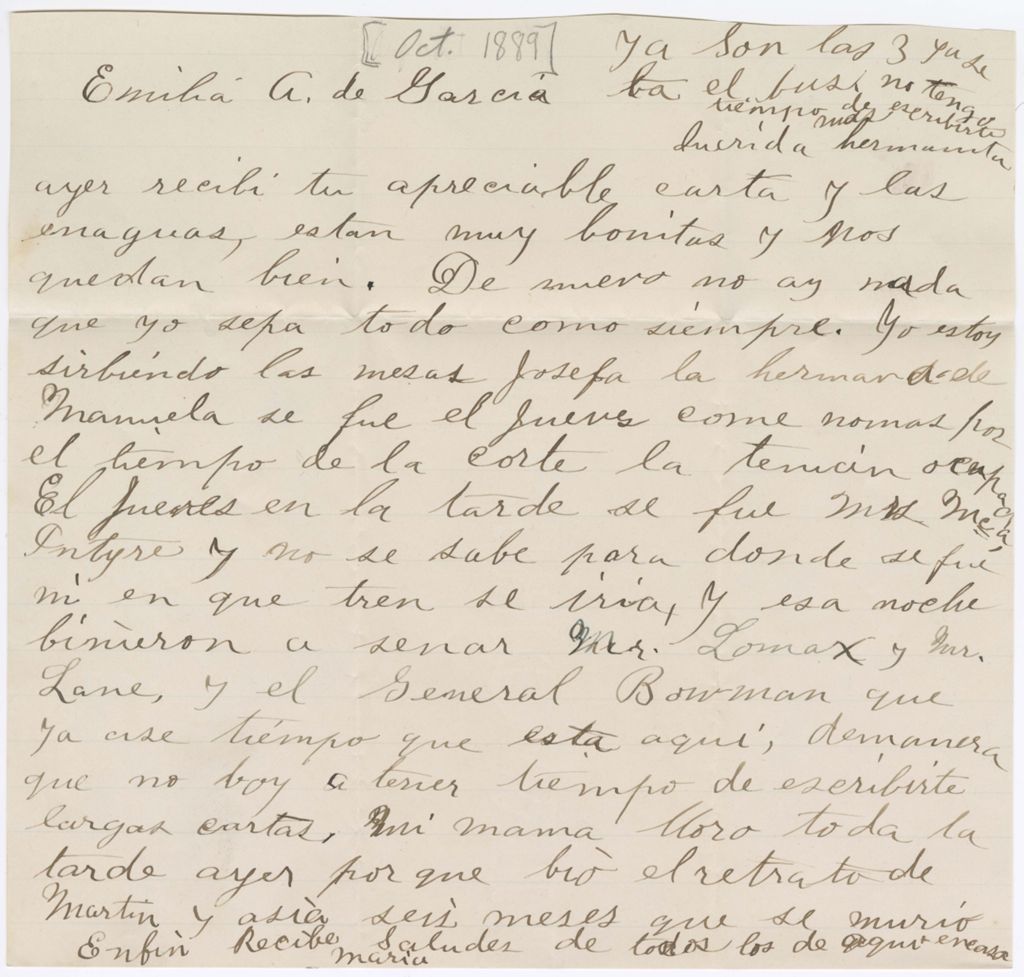 [Oct. 1889]
Ya son las 3 ya se
ba el busi no tengo
tiempo de escribirte
mas
Emilia A. de Garcia
Querida hermanita
ayer recibi tu apreciable carta y las
enaguas, estan muy bonitas y nos
quedan bien. De nuevo no ay nada
que yo sepa todo como siempre. Yo estoy
sirbiendo las mesas Josefa la hermana de
Manuela se fue el Jueves come nomas por
el tiempo de la corte la tenian ocupada,
El Jueves en la tarde se fue Mrs Mc
Intyre y no se sabe para donde se fue
ni en que tren se iria, y esa noche
binieron a senar Mr. Lomax y Mr.
Lane, y el General Bowman que
ya ase tiempo que esta aqui, demanera
que no boy a tener tiempo de escribirte
largas cartas, Mi mama lloro toda la
tarde ayer porque biò el retrato de
Martin y asia seis meses que se murio
Enfin Recibe Saludes de todos los de aqui en casa
maria